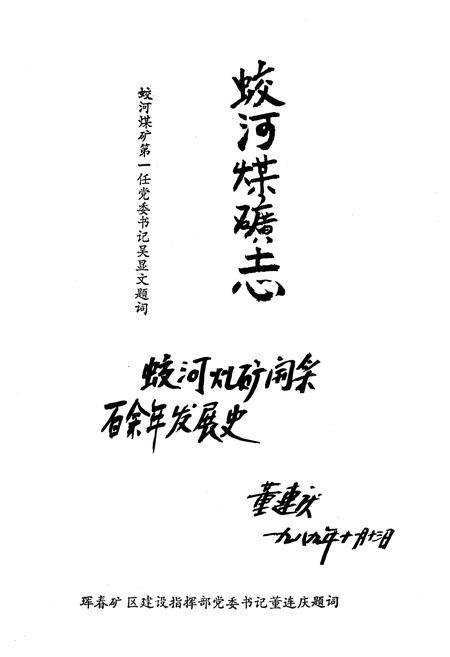 蛟河煤礦志
蛟河煤矿第一任党委书记吴显文题词
蛟河矿開采
百余年发展史
董連庆
一九八九年十月十三日
珲春矿区建设指挥部党委书记董连庆题词